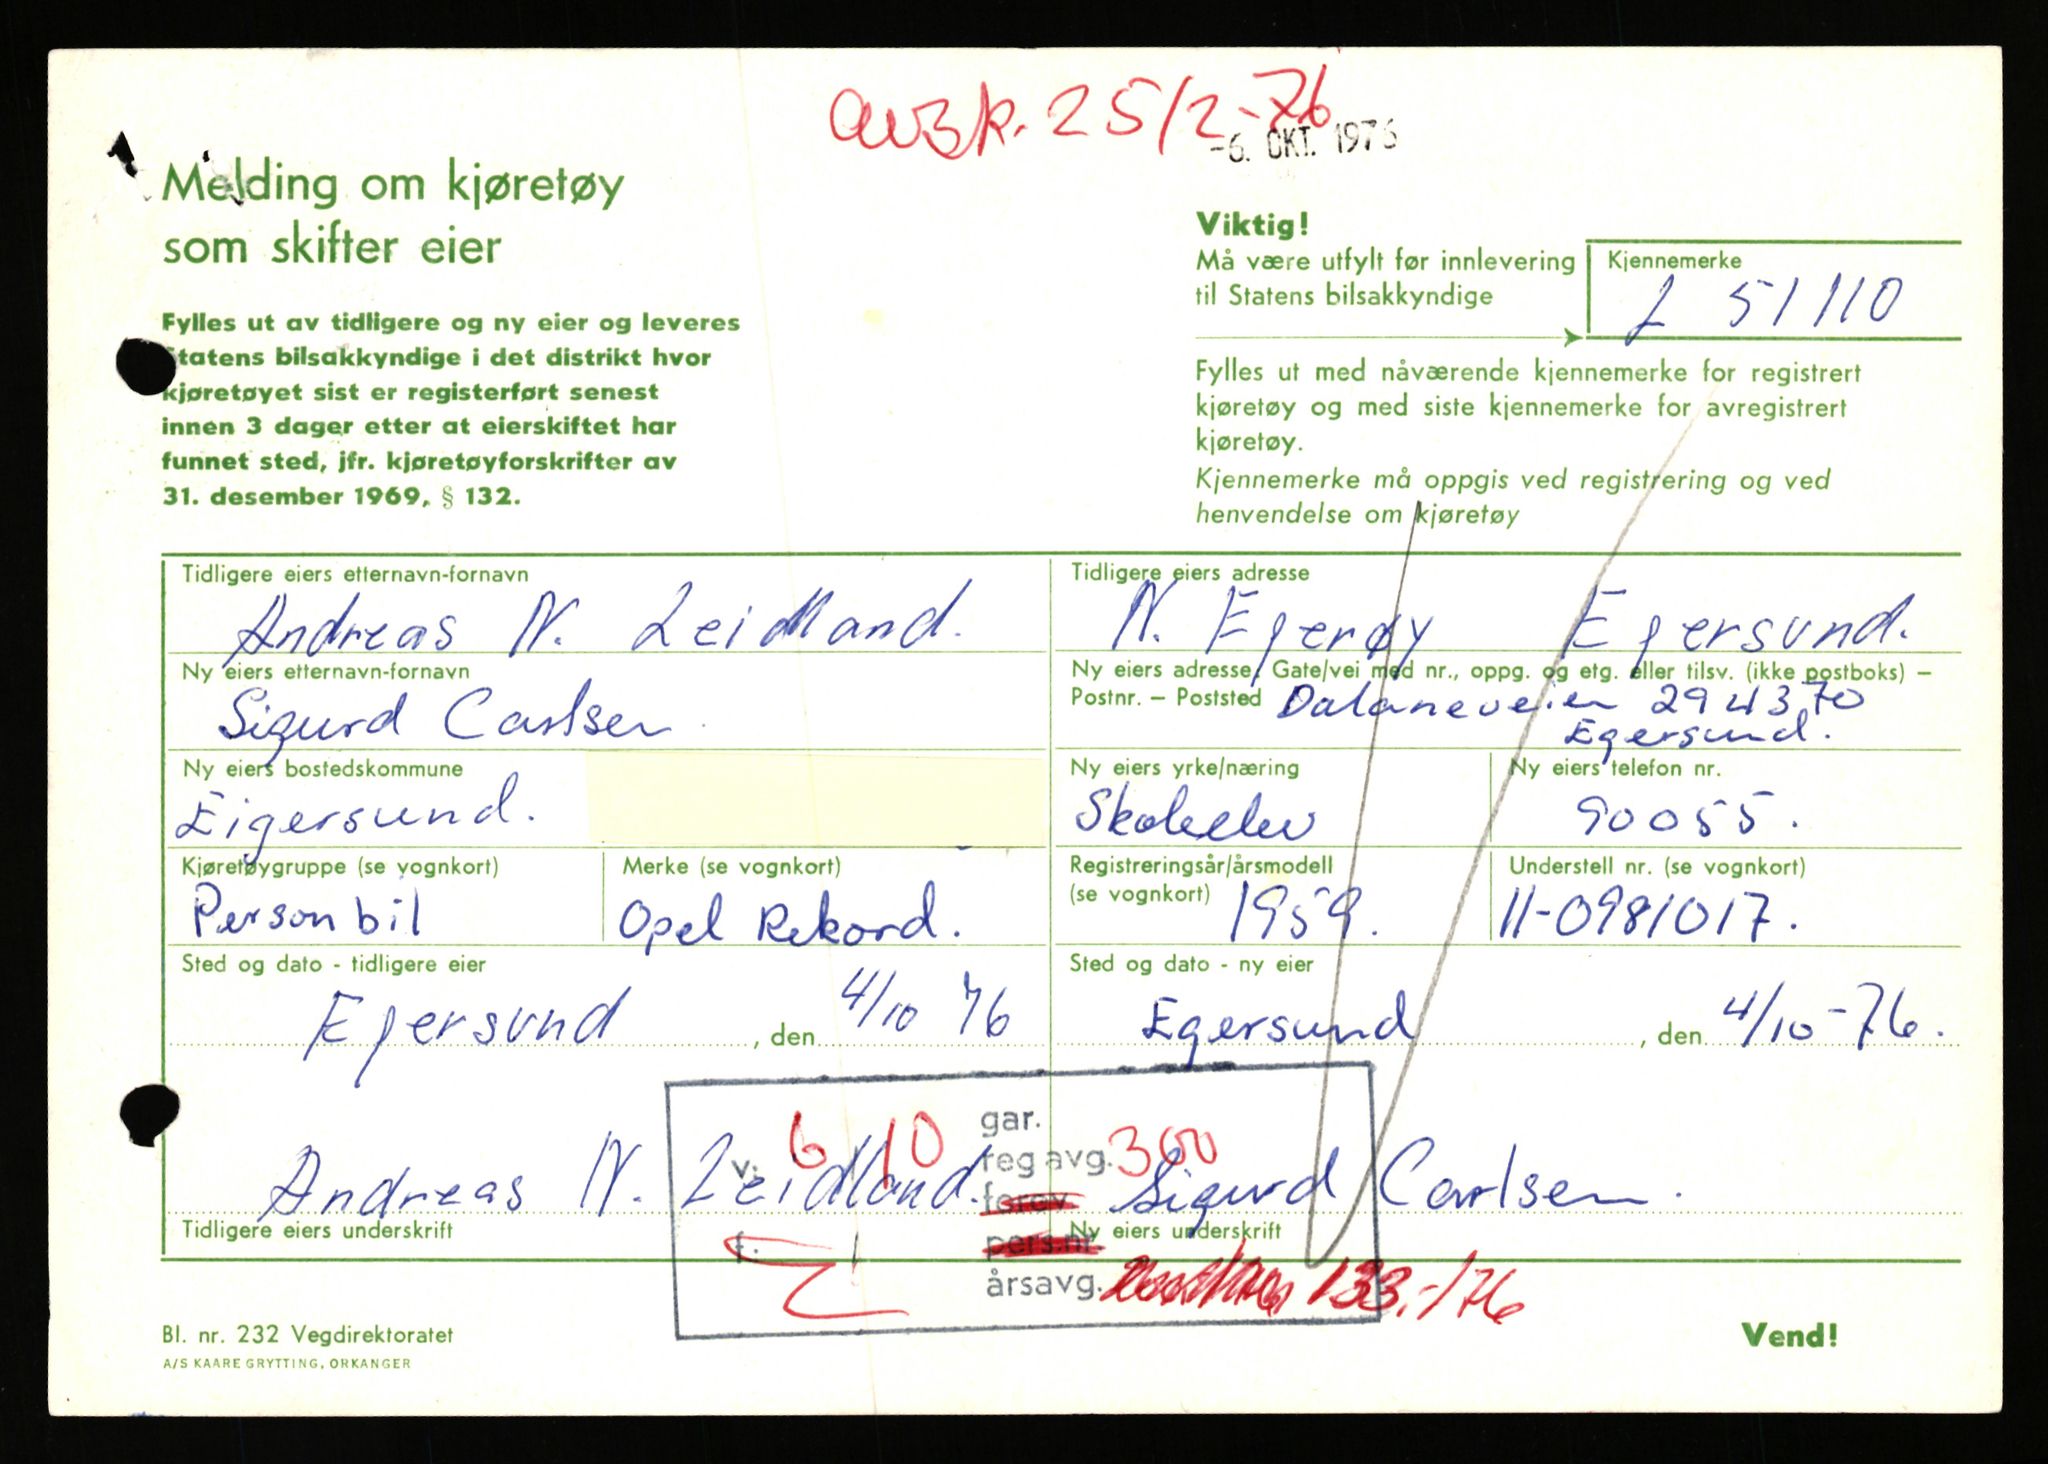 avsk. 25/2-76
-6. OKT. 1976
Melding om kjøretøy
som skifter eier
Viktig!
Må være utfylt før innlevering
til Statens bilsakkyndige
Kjennemerke
L 51110
Fylles ut av tidligere og ny eier og leveres
Statens bilsakkyndige i det distrikt hvor
kjøretøyet sist er registerført senest
innen 3 dager etter at eierskiftet har
funnet sted, jfr. kjøretøyforskrifter av
31. desember 1969, § 132.
Fylles ut med nåværende kjennemerke for registrert
kjøretøy og med siste kjennemerke for avregistrert
kjøretøy.
Kjennemerke må oppgis ved registrering og ved
henvendelse om kjøretøy
Tidligere eiers etternavn-fornavn
Andreas N. Leidland.
Tidligere eiers adresse
N. Egerøy Egersund.
Ny eiers etternavn-fornavn
Sigurd Carlsen.
Ny eiers adresse, Gate/vei med nr., oppg. og etg. eller tilsv. (ikke postboks) –
Postnr. – Poststed Dalaneveien 29 4370
Egersund.
Ny eiers bostedskommune
Eigersund.
Ny eiers yrke/næring
Skoleelev
Ny eiers telefon nr.
90055.
Kjøretøygruppe (se vognkort)
Personbil
Merke (se vognkort)
Opel Rekord.
Registreringsår/årsmodell
(se vognkort) 1959.
Understell nr. (se vognkort)
11-0981017.
Sted og dato - tidligere eier
Egersund, den 4/10 76
Sted og dato - ny eier
Egersund, den 4/10-76.
gar.
v: 6 10
reg avg. 300
forev
Andreas N. Leidland.
Sigurd Carlsen.
Tidligere eiers underskrift
Ny eiers underskrift
f.
pers.nr.
årsavg. 133.-/76
Bl. nr. 232 Vegdirektoratet
A/S KAARE GRYTTING, ORKANGER
Vend!